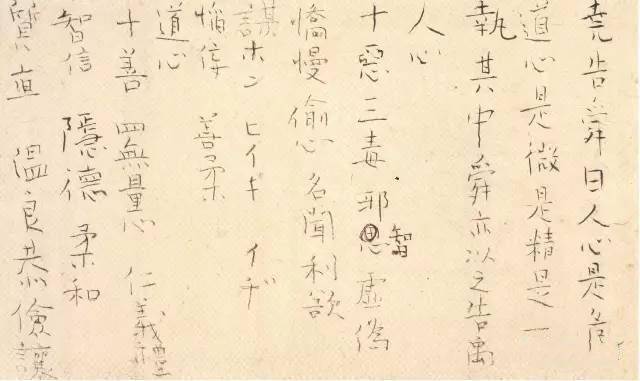 堯告舜曰人心是危
道心是微是精是一
執其中舜亦以之告禹
人心
十惡三毒邪智虛偽
憍慢偸心名聞利欲
謀ホン ヒイキ イヂ
佞 善柔
道心
十善 四無量心 仁義禮
智信 隱德 柔和
質直 溫良恭儉讓